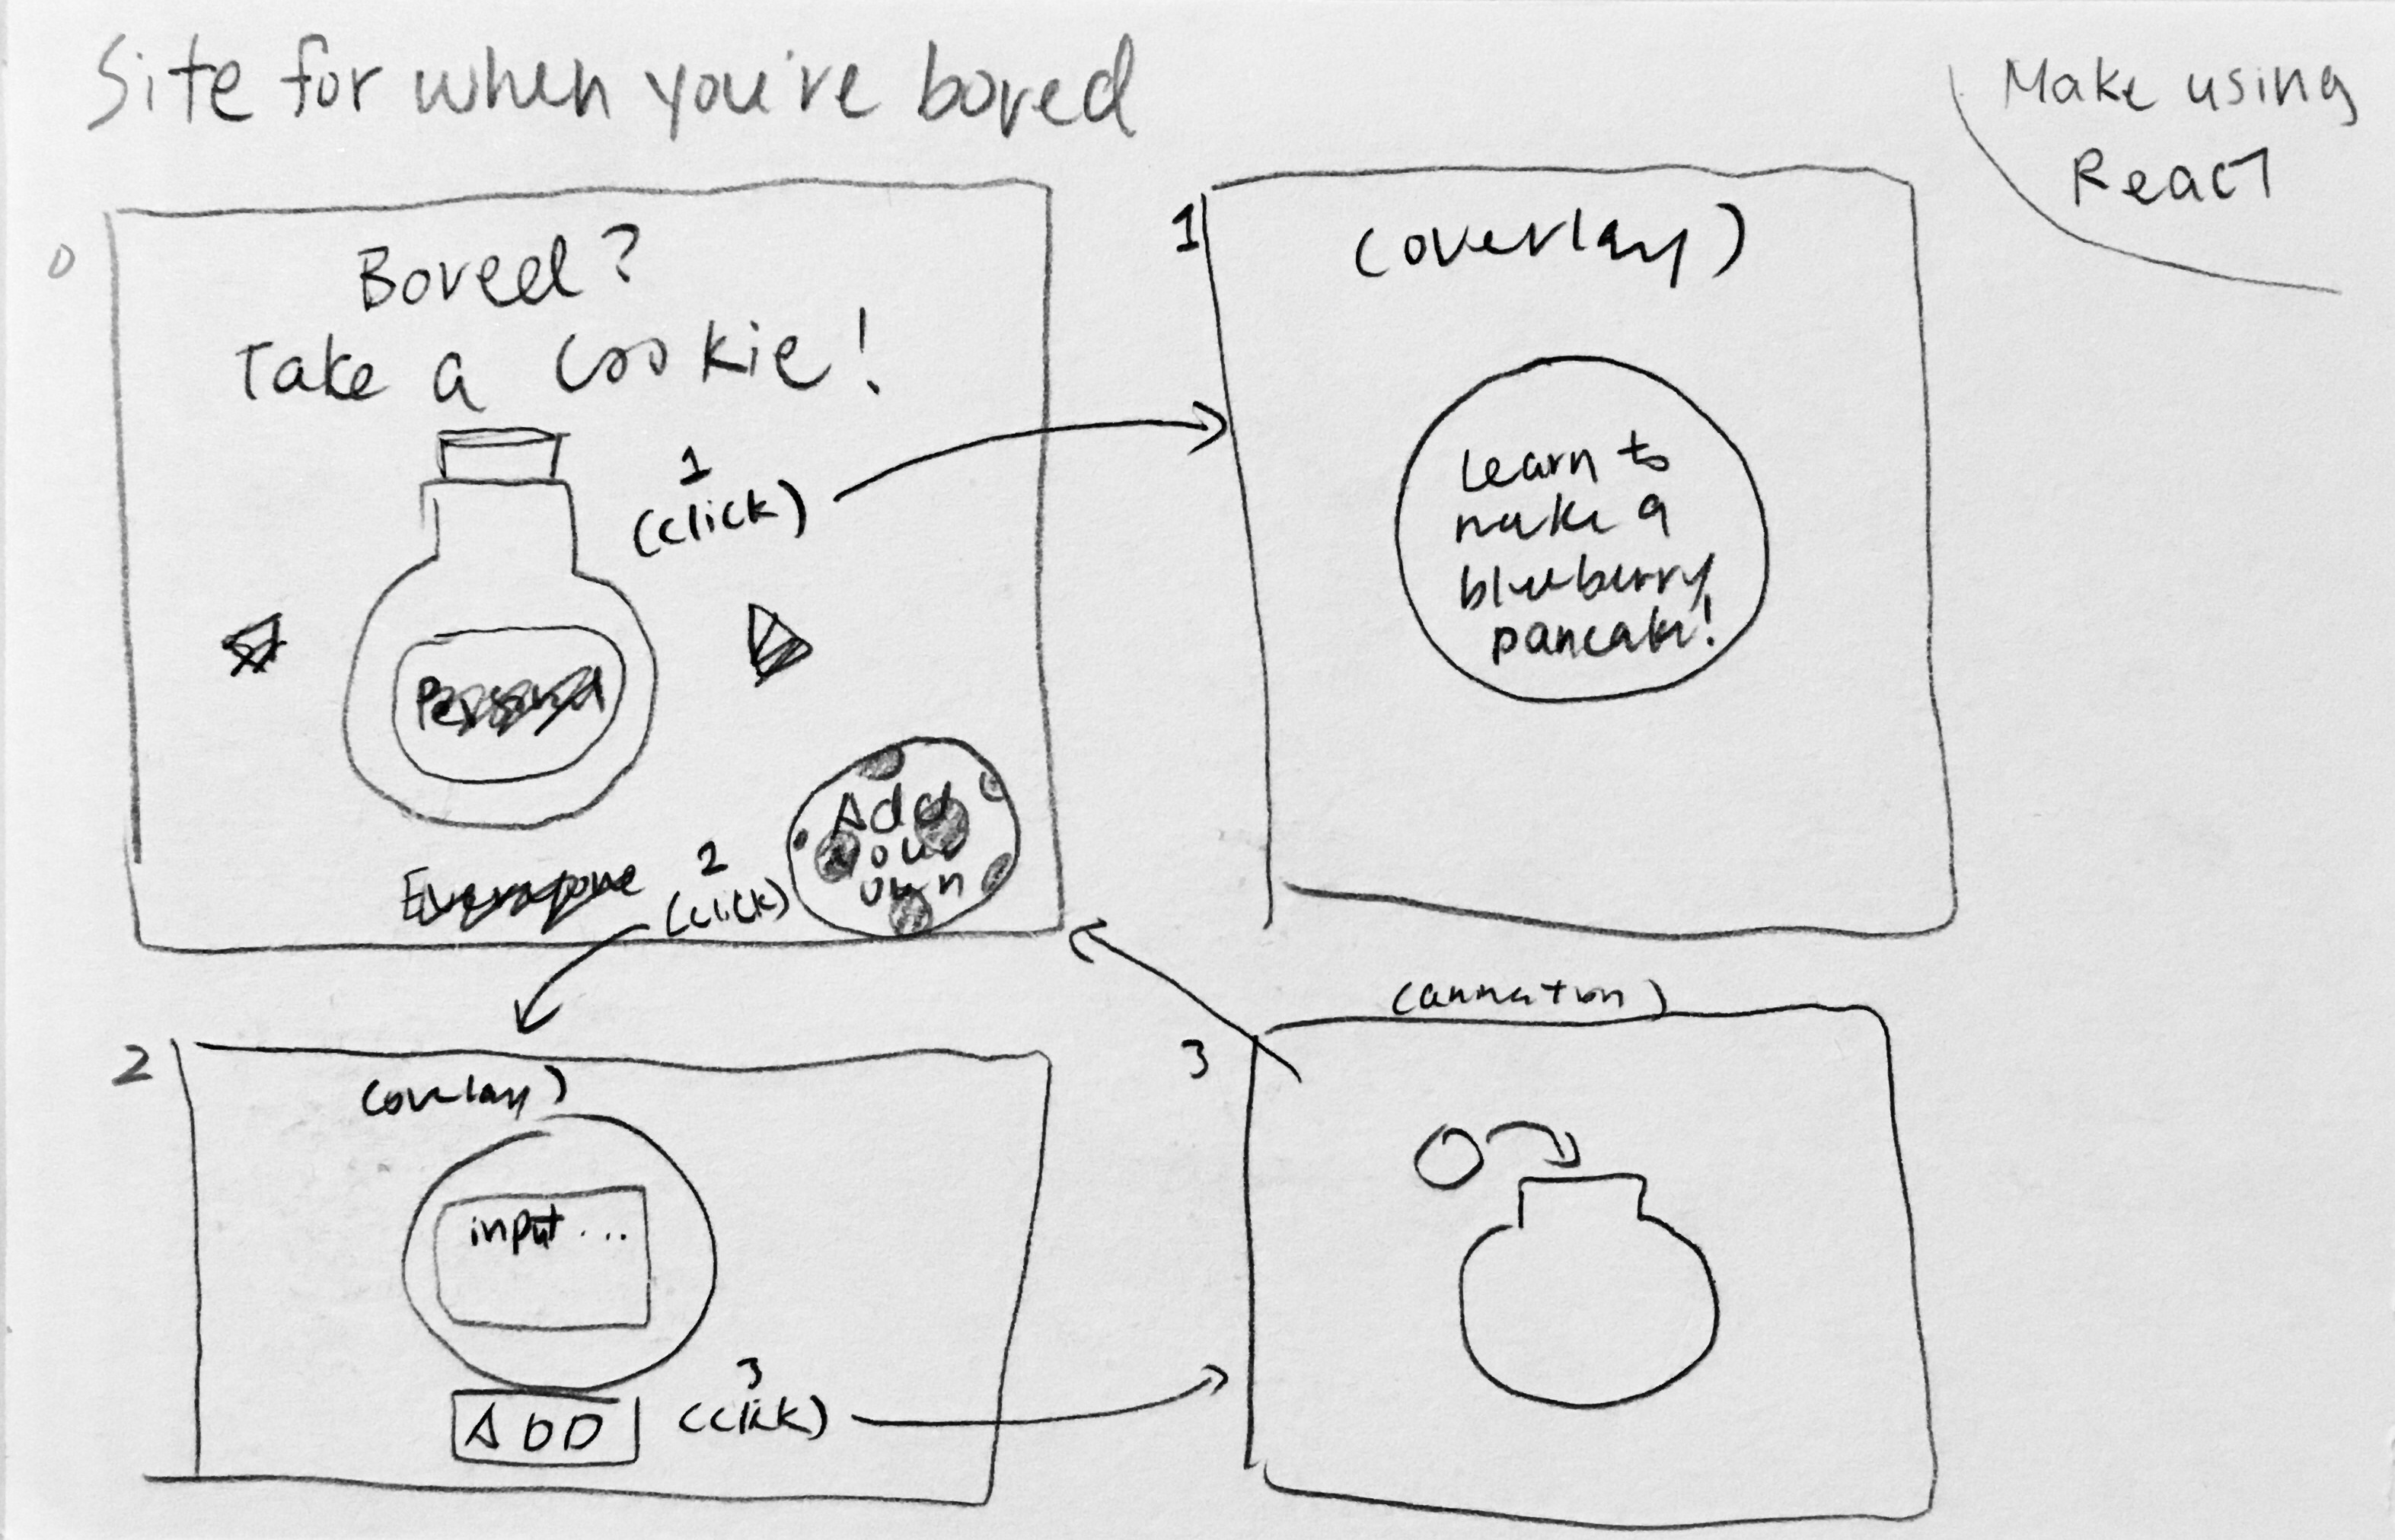 Site for when you're bored
Make using
React
0
Bored?
Take a cookie!
1
(click)
Personal
Everyone
2
(click)
Add
your
own
1
(overlay)
Learn to
make a
blueberry
pancake!
2
(overlay)
input...
ADD
3
(click)
3
(animation)